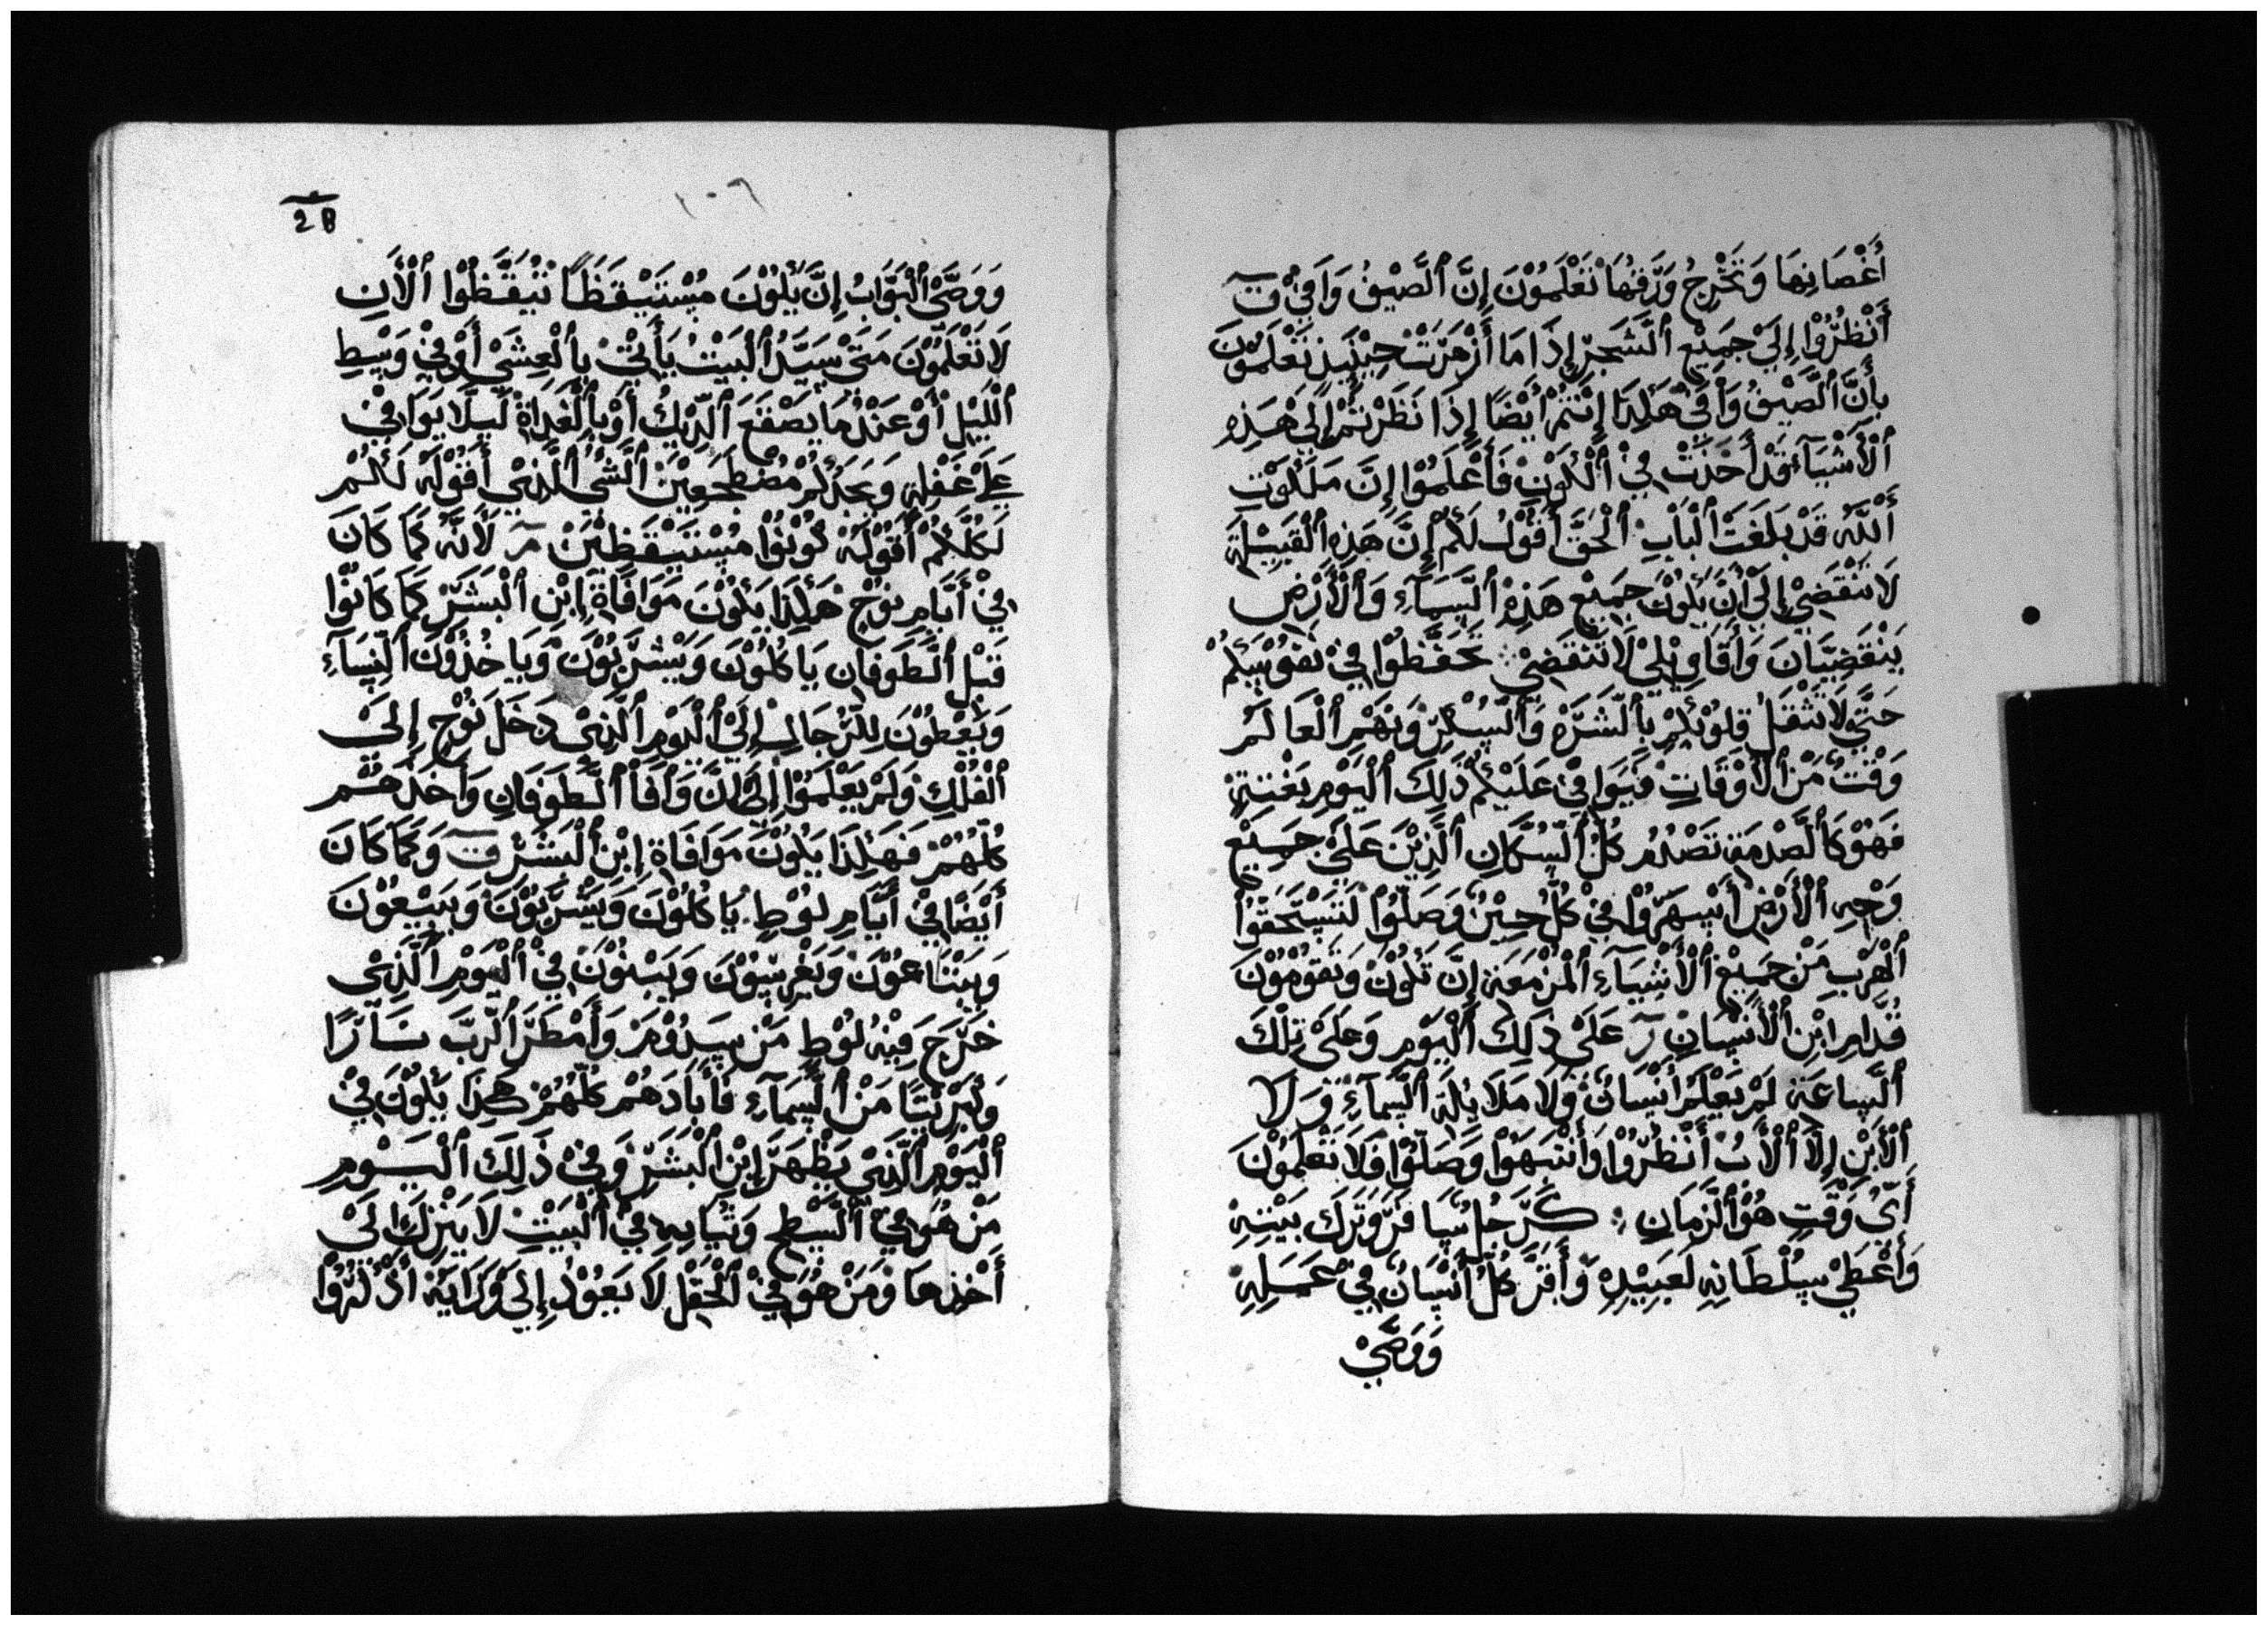 أَغْصَانِهَا وَتَخْرِجُ وَرَقِهَا تَعْلَمُوْنَ إِنَّ ٱلصَّيْفُ وَافَىْ قٓ
أَنْظُرُوْا إِلَىْ جَمِيْعِ ٱلشَّجَرِ إِذَا مَا أَزْهَرَتْ حِيْنَيِذٍ تَعْلَمُوْنَ
بِأَنَّ ٱلصَّيْفُ وَافَىْ هَكَذَا إِنْتُمْ أَيْضًا إِذَا نَظَرْتُمْ إِلَىْ هَذِهِ
ٱلْأَشْيَآءَ قَدْ أَخَذَتْ فِيْ ٱلْكَوْنِ فَٱعْلَمُوْا إِنَّ مَلَكُوْتِ
ٱللَّهْ قَدْ بَلَغَتْ ٱلْبَابِ ٱلْحَقَّ أَقُوْلُ لَكُمْ إِنَّ هَذِهِ ٱلْقَبِيْلَةِ
لَا تَنْقَضِيْ إِلَىْ أَنْ يَكُوْنَ جَمِيْعِ هَذِهْ ٱلسَّمَآءِ وَٱلْأَرْضِ
يَنْقَضِيَانَ وَأَقَاوِيْلِيْ لَا تَنْقَضِيْ تَحَفَّظُوْا فِيْ نَفُوْسِكُمْ
حَتَّى لَا تَثْقَلْ قَلُوْبُكُمْ بِٱلشَّرَهْ وَٱلسُّكْرِ وَبَهَمِ ٱلْعَالَمْ
وَقْتٌ مَنْ ٱلْأَوْقَاتِ فَيُوَافِيْ عَلَيْكُمْ ذَلِكَ ٱلْيَوْمِ بَغْتَتِهِ
فَهُوْ كَٱلصَّدْمَةِ تَصْدُمُ كُلْ ٱلسُّكَّانِ ٱلَّذِيْنَ عَلَىْ جَمِيْعِ
وَجْهِ ٱلْأَرْضِ أَسْهَرُوْا فِيْ كُلْ حِيْنٌ وَصَلُّوْا لَتَسْتَحَقُّوْا
ٱلْهَرْبِ مَنْ جَمِيْعْ ٱلْأَشْيَآءِ ٱلْمُزْمَعَةِ إِنَّ تَكُوْنْ وَتَقُوْمُوْنَ
قُدَّامِ ٱبْنِ ٱلْأَنْسَانْ رٓ عَلَىْ ذَلِكَ ٱلْيَوْمِ وَعَلَىْ تِلْكَ
ٱلسَّاعَةِ لَمْ يَعْلَمْ أَنْسَانٌ وَلَا مَلَايِكَةِ ٱلسَّمَآءِ وَلَا
ٱلْأَبْنِ إِلَّا ٱلْأَبُ أَنْظُرُوْا وَأَنْتَبِهُوْا وَصَلُّوْا فَلَا تَعْلَمُوْنَ
أَىُّ وَقْتِ هُوْ ٱلزَّمَانِ كَرَجُلٍ سَافَرَ وَتَرَكَ بَيْتِهِ
وَأَعْطَىْ سُلْطَانِهِ لَعَبِيْدِهِ وَأَقَرَّ كُلْ أَنْسَانٌ فِيْ عَمَلِهِ
وَوَصَّىْ
١٠٦
28
وَوَصَّىْ ٱلْبَوَّابُ إِنَّ يَكُوْنَ مُسْتَيْقَظًا تَيْقَّظُوْا ٱلْأَنِ
لَا تَعْلَمُوْنَ مَتَىْ سَيَّدُ ٱلْبَيْتْ يَأْتِيْ بِٱلْعِشَىْ أَوْ فِيْ وَسْطِ
ٱللَّيْلِ أَوْ عَنْدْمَا يَصْقَعَ ٱلدِّيْكُ أَوْ بِٱلْغَدَاةْ لَيَلَّا يَوَافِيْ
عَلَىْ غَفْلَةٍ وَيَجَدُكُمْ مُضْطَجَعِيْنَ ٱلشَّيْ ٱلَّذِيْ أَقُوْلُهُ لَكُمْ
لَكُلَّكُمْ أَقُوْلَهْ كُوْنُوْا مُسْتَيْقَظِيْنَ مٓ لَأَنَّهْ كَمَا كَانَ
فِيْ أَيَّامِ نُوْحٍ هَكَذَا يَكُوْنَ مَوَافَاةِ إِبْنِ ٱلْبَشَرْ كَمَا كَانُوْا
قَبْلِ ٱلطَّوَفَانِ يَاكُلُوْنَ وَيَشْرَبُوْنَ وَيَاخُذُوْنَ ٱلنِّسَآءِ
وَيَعْطُوْنَ لِلرِّجَالِ إِلَىْ ٱلْيَوْمِ ٱلَّذِيْ دَخَلَ نُوْحٍ إِلَىْ
ٱلْفُلْكِ وَلَمْ يَعْلَمُوْا إِلَىْ أَنَّ وَافَا ٱلطَّوَفَانِ وَأَخَذَهُمْ
كُلَّهُمْ فَهَكَذَا يَكُوْنَ مَوَافَاةِ إِبْنِ ٱلْبَشَرْ قٓ وَكَمَا كَانَ
أَيْضًا فِيْ أَيَّامِ لُوْطٍ يَاكُلُوْنَ وَيَشْرَبُوْنَ وَيَبِيْعُوْنَ
وَيَبْتَاعُوْنَ وَيَغْرِسُوْنَ وَيَبْنُوْنَ فِيْ ٱلْيَوْمِ ٱلَّذِيْ
خَرَجَ فِيْهْ لُوْطٍ مَنْ سَدُوْمَ وَأَمْطَرَ ٱلرَّبَّ نَارًا
وَكَبْرِيْتًا مَنْ ٱلسَّمَآءِ فَأَبَادَهُمْ كُلَّهُمْ هَكَذَا يَكُوْنَ فِيْ
ٱلْيَوْمِ ٱلَّذِيْ يَظْهَرَ إِبْنِ ٱلْبَشَرْ وَفِيْ ذَلِكَ ٱلْيَوْمِ
مَنْ هُوَ فِيْ ٱلسَّطْحِ وَثَيَابِهِ فِيْ ٱلْبَيْتِ لَا يَنْزِكَ لَىْ
أَخْذِهَا وَمَنْ هُوَ فِيْ ٱلْحَقْلِ لَا يَعُوْدُ إِلَىْ وَرَايَهْ أَذْكُرُوْا